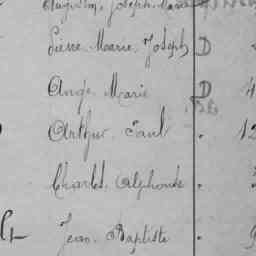 Augustin, Joseph, Marie
Pierre. Marie. Joseph D
Ange. Marie D 4
Arthur. Paul . 12
Charles. Alphonse .
Jean. Baptiste .